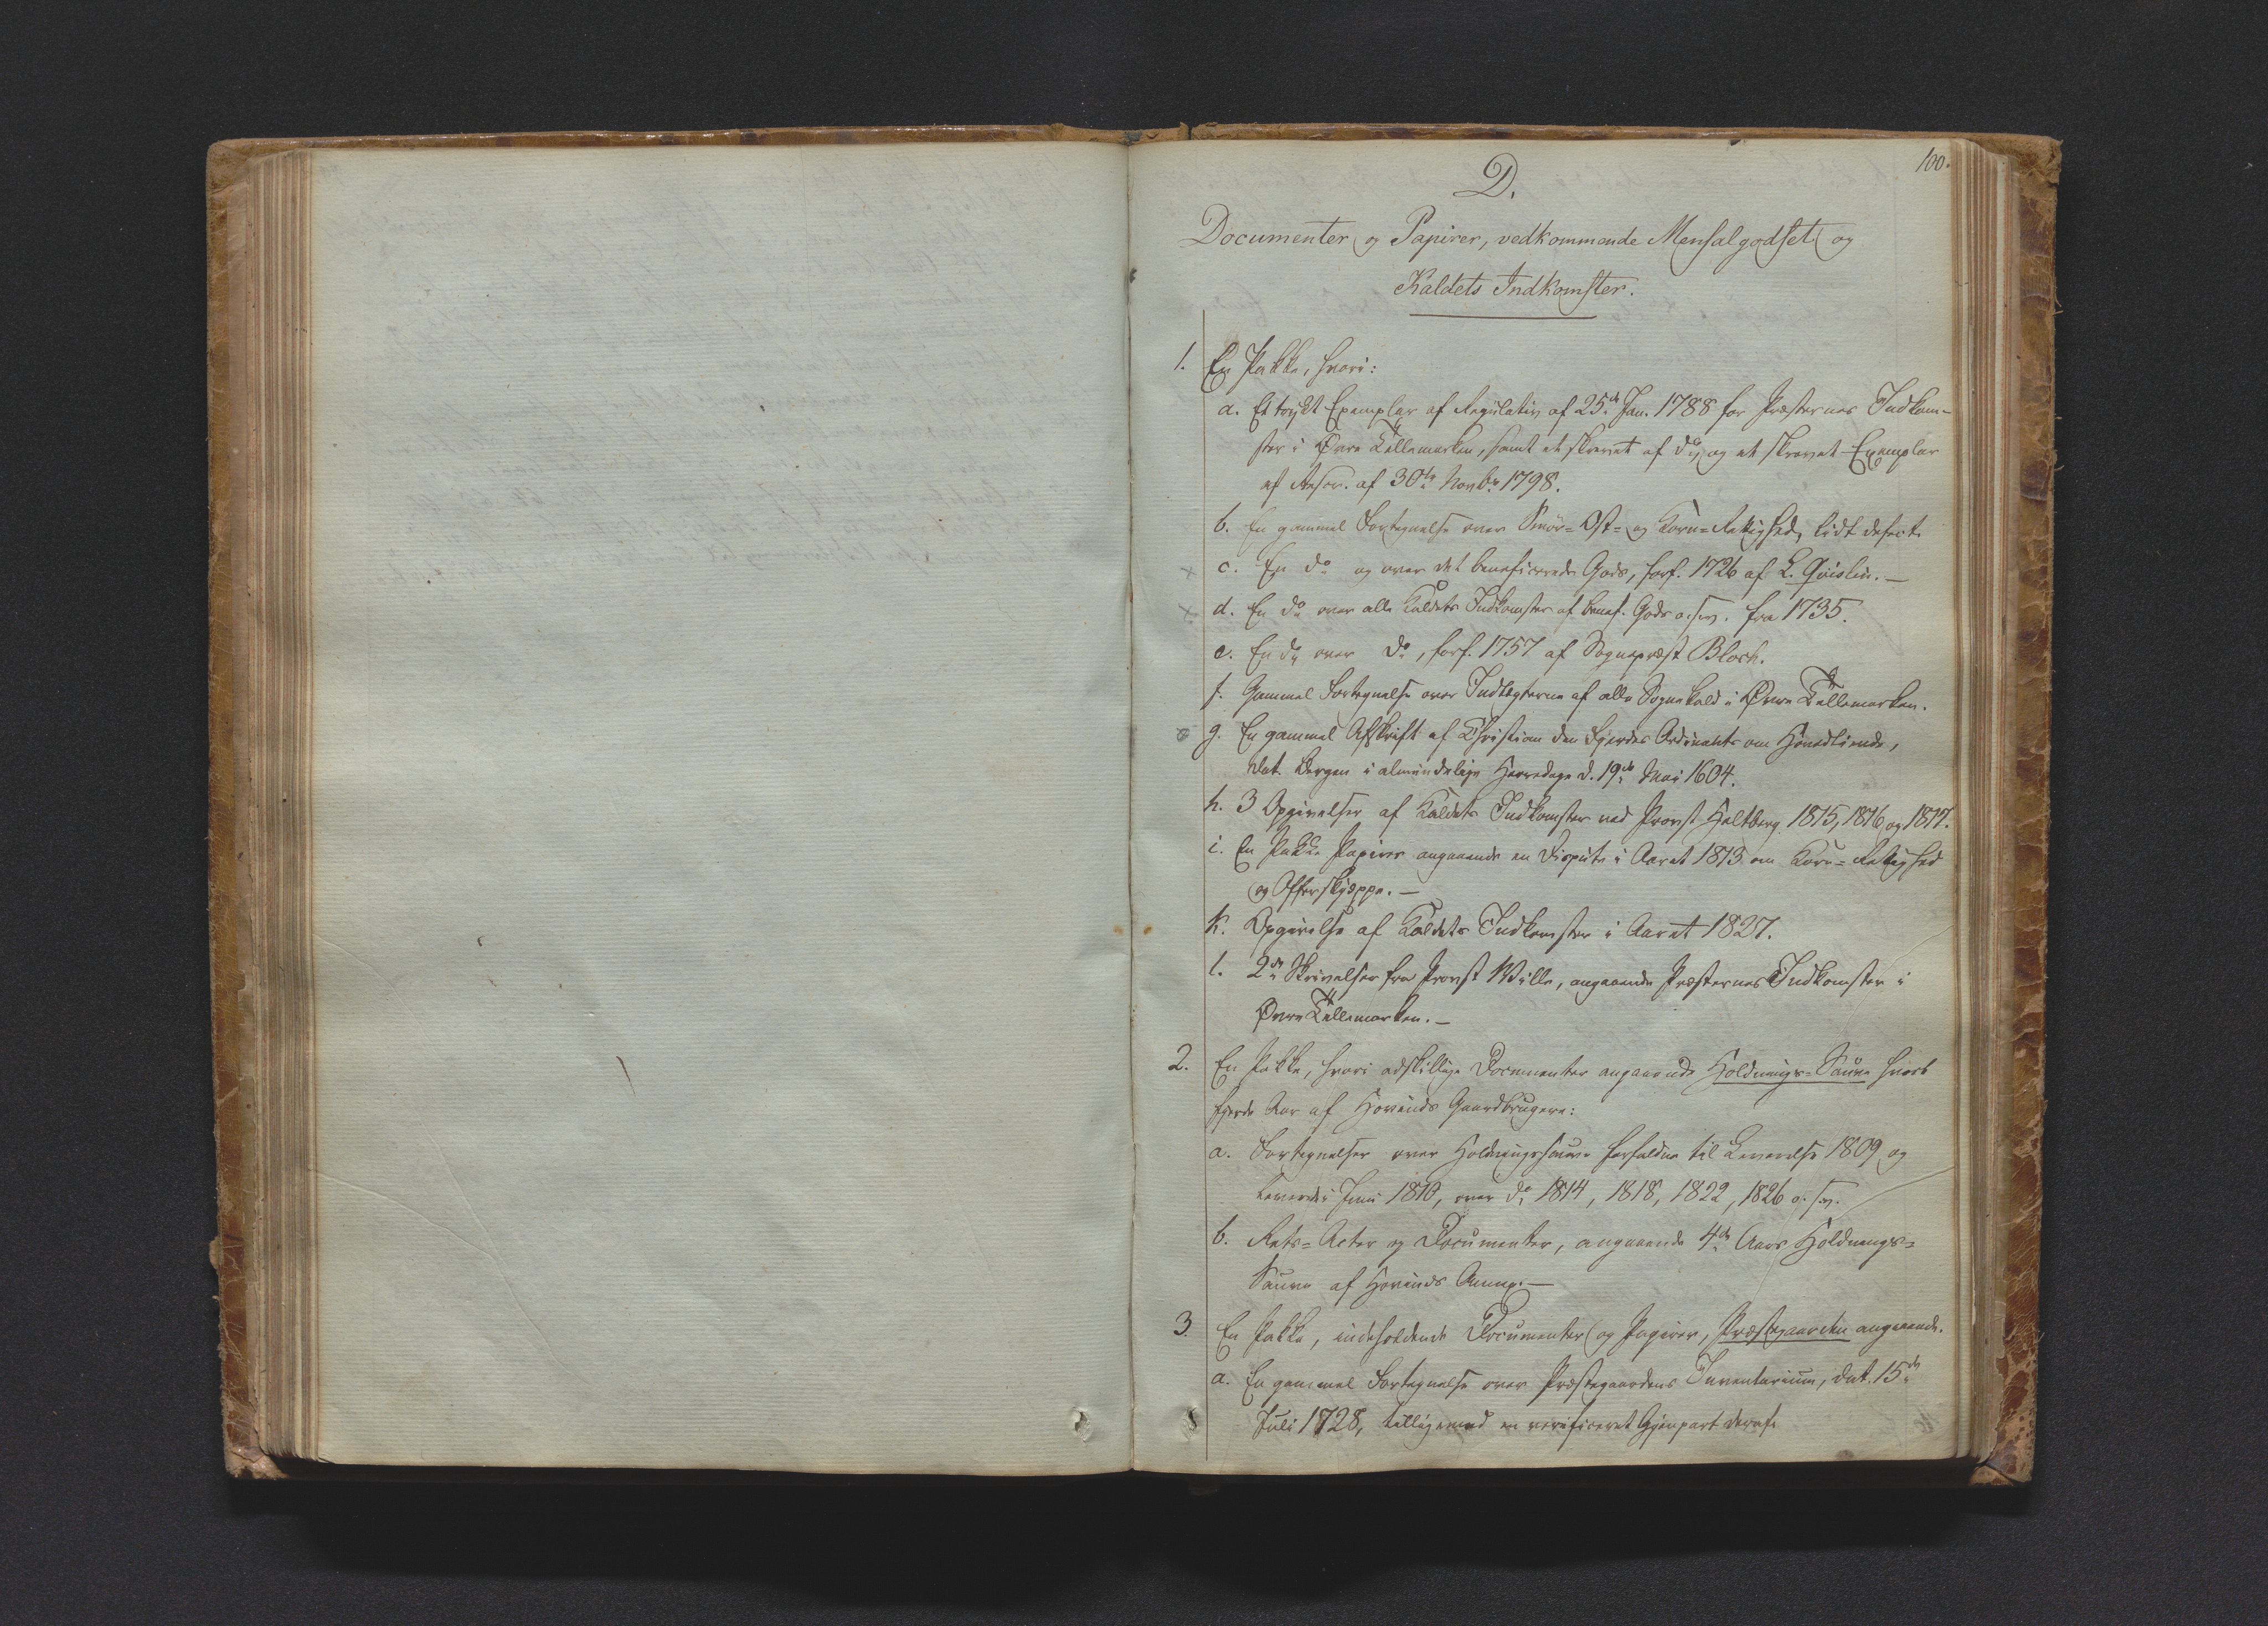 100.
D.
Documenter og Papirer, vedkommende Mensalgodset og
Kaldets Indkomster.
1. En Pakke, hvori:
a. Et trykt Exemplar af Regulativ af 25de Jan. 1788 for Præsternes Indkom-
ster i Øvre Tellemarken, samt et skrevet af do, og et skrevet Exemplar
af Rescr. af 30te Novbr 1798.
b. En gammel Fortegnelse over Smör- Ost- og Korn-Retighed, lidt defect.
c. En do og over det beneficerede Gods, forf. 1726 af L. Qvislin. —
d. En do over alle Kaldets Indkomster af benef. Gods o. s. v. fra 1735.
e. En do over do, forf. 1757 af Sognepræst Bloch.
f. Gammel Fortegnelse over Indtægterne af alle Sognekald i Øvre Tellemarken.
g. En gammel Afskrift af Christian den Fjerdes Ordinants om
dat. Bergen i almindelige Herredage d. 19de Mai 1604.
h. 3 Opgivelser af Kaldets Indkomster ved Provst Holtberg 1815, 1816 og 1817.
i. En Pakke Papirer angaaende en Dispute i Aaret 1813 om Korn-Retighed
og Offerskjæppe. —
k. Opgivelse af Kaldets Indkomster i Aaret 1827.
l. 2de Skrivelser fra Provst Wille, angaaende Præsternes Indkomster i
Øvre Tellemarken. —
2. En Pakke, hvori adskillige Documenter angaaende Holdnings-Sauer hvert
fjerde Aar af Hovinds Gaardbrugere:
a. Fortegnelser over Holdningssauer forfaldne til Leverelse 1809 og
leverede i Juni 1810, over do 1814, 1818, 1822, 1826 o. s. v.
b. Rets-Acter og Documenter, angaaende 4de Aars Holdnings-
Sauer af Hovinds Annex. —
3. En Pakke, indeholdende Documenter og Papirer, Præstegaarden angaaende.
a. En gammel Fortegnelse over Præstegaardens Inventarium, dat. 15de
Juli 1728, tilligemed en verificeret Gjenpart deraf.